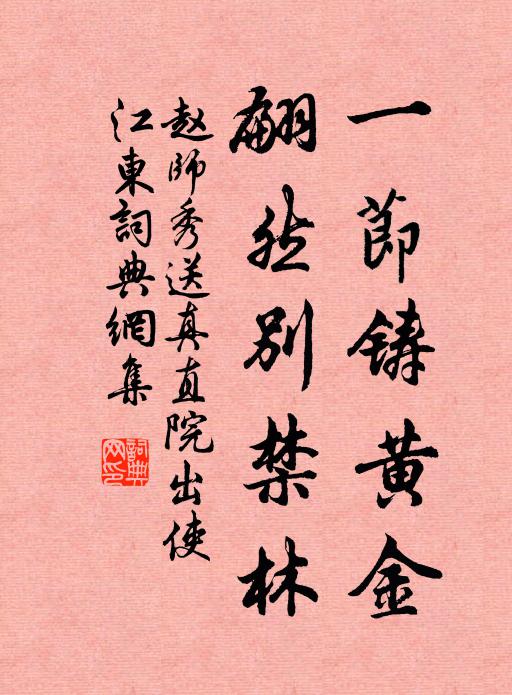 一節鑄黃金
翩然別禁林
赵師秀送真直院出使
江東詞典網集
詞典网印